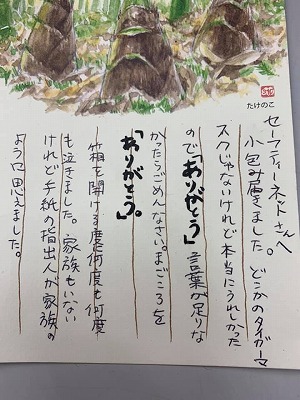 たけのこ
セーフティーネットさんへ
小包み届きました。どこかのタイガーマ
スクじゃないけれど本当にうれしかった
ので「ありがとう」言葉が足りな
かったらごめんなさい。まごころを
「ありがとう」。
箱を開ける度に何度も何度
も泣きました。家族もいない
けれど手紙の指出人が家族の
ように思えました。